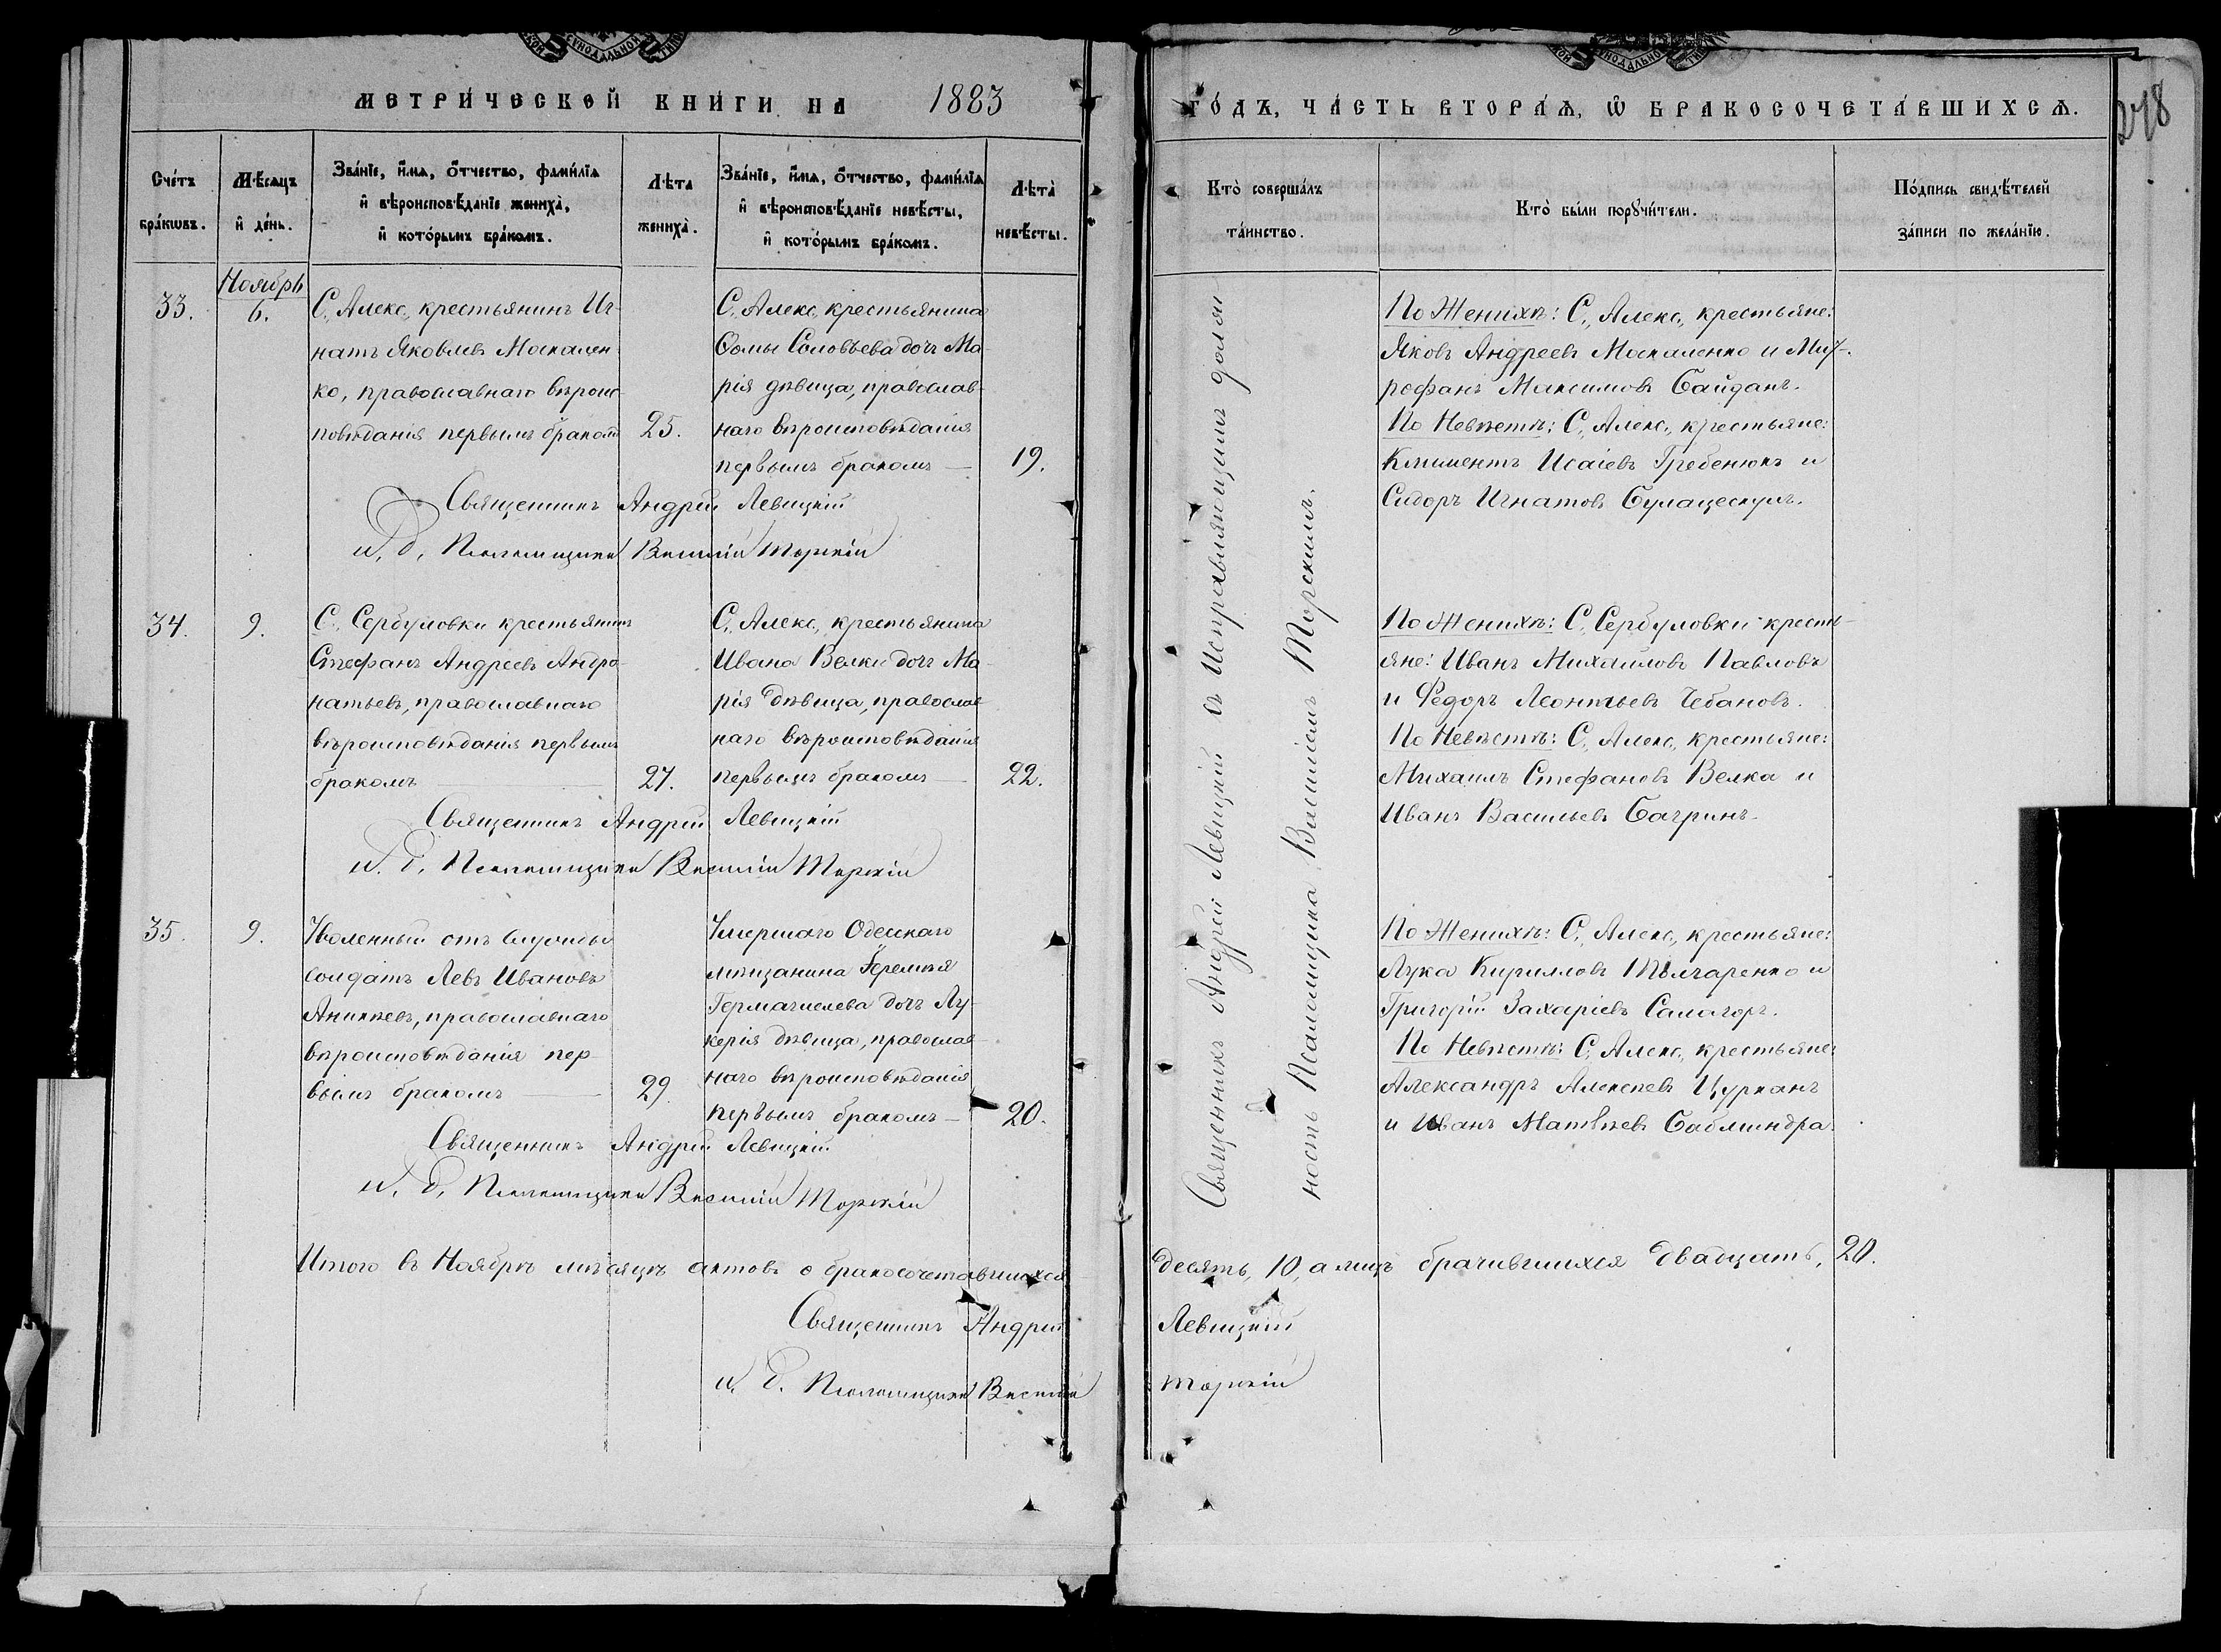 МЕТРИЧЕСКОЙ КНИГИ НА 1883
Счетъ браковъ.
Мѣсяцъ и день.
Званіе, имя, отчество, фамилія и вѣроисповѣданіе жениха, и которымъ бракомъ.
Лѣта жениха.
Званіе, имя, отчество, фамилія и вѣроисповѣданіе невѣсты, и которымъ бракомъ.
Лѣта невѣсты.
Ноябрь
33.
6.
С. Алекс. крестьянинъ Иг-
натъ Яковлевъ Москален-
ко, православнаго вѣроис-
повѣданія первымъ бракомъ
25.
С. Алекс. крестьянина
Ѳомы Соловьева дочь Ма-
рія дѣвица, православ-
наго вѣроисповѣданія
первымъ бракомъ —
19.
Священникъ Андрей Левицкій
и. д. Псаломщика Василій Торскій
34.
9.
С. Сербуловки крестьянинъ
Стефанъ Андреевъ Андро-
натьевъ, православнаго
вѣроисповѣданія первымъ
бракомъ —
27.
С. Алекс. крестьянина
Ивана Велки дочь Ма-
рія дѣвица, православ-
наго вѣроисповѣданія
первымъ бракомъ —
22.
Священникъ Андрей Левицкій
и. д. Псаломщика Василій Торскій
35.
9.
Уволенный отъ службы
солдатъ Левъ Ивановъ
Аникѣевъ, православнаго
вѣроисповѣданія пер-
вымъ бракомъ —
29.
Умершаго Одесскаго
мѣщанина Еремѣя
дочь Лу-
керія дѣвица, православ-
наго вѣроисповѣданія
первымъ бракомъ —
20.
Священникъ Андрей Левицкій
и. д. Псаломщика Василій Торскій
Итого въ Ноябрѣ мѣсяцѣ актовъ о бракосочетавшихся
Священникъ Андрей
и. д. Псаломщика Василій
ГОДЪ, ЧАСТЬ ВТОРАЯ, Ѡ БРАКОСОЧЕТАВШИХСЯ.
278
Кто совершалъ таинство.
Кто были поручители.
Подпись свидѣтелей записи по желанію.
Священникъ Андрей Левицкій съ Исправляющимъ долж-
ность Псаломщика Василіемъ Торскимъ.
По Женихѣ: С. Алекс. крестьяне:
Яковъ Андреевъ Москаленко и Мит-
рофанъ Максимовъ Гайданъ.
По Невѣстѣ: С. Алекс. крестьяне:
Климентъ Исаіевъ Гребенюкъ и
Сидоръ Игнатовъ
По Женихѣ: С. Сербуловки кресть-
яне: Иванъ Михайловъ Павловъ
и Федоръ Леонтьевъ Чебановъ.
По Невѣстѣ: С. Алекс. крестьяне:
Михаилъ Стефановъ Велка и
Иванъ Васильевъ Багринъ.
По Женихѣ: С. Алекс. крестьяне:
Лука Кирилловъ
Григорій Захаріевъ Самагоръ.
По Невѣстѣ: С. Алекс. крестьяне:
Александръ Алексѣевъ Цурканъ
и Иванъ Матвѣевъ
десять, 10, а лицъ брачившихся двадцать, 20.
Левицкій
Торскій